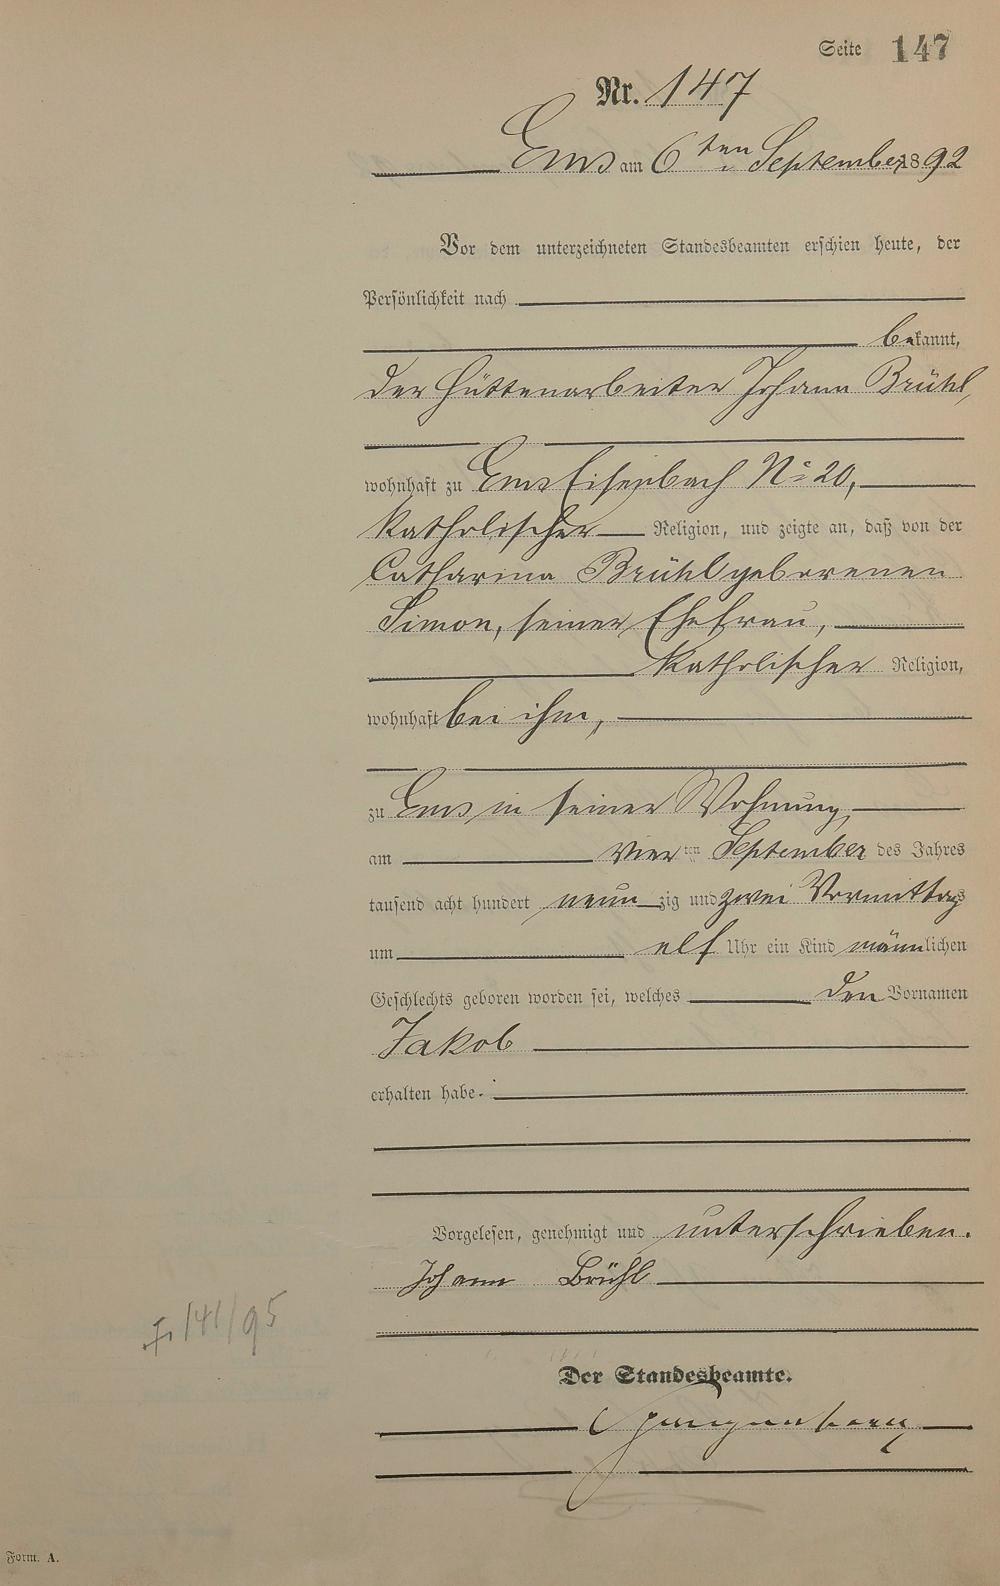 Seite 147
Nr. 147
Ems am 6ten September 1892
Vor dem unterzeichneten Standesbeamten erschien heute, der
Persönlichkeit nach
bekannt,
der Hüttenarbeiter Johann Brühl,
wohnhaft zu Ems Eisenbach No 20,
katholischer Religion, und zeigte an, daß von der
Catharina Brühl geborenen
Simon, seiner Ehefrau,
katholischer Religion,
wohnhaft bei ihm,
zu Ems in seiner Wohnung,
am vierten September des Jahres
tausend acht hundert neunzig und zwei Vormittags
um elf Uhr ein Kind männlichen
Geschlechts geboren worden sei, welches den Vornamen
Jakob
erhalten habe.
Vorgelesen, genehmigt und unterschrieben.
Johann Brühl
141/95
Der Standesbeamte.
Form. A.